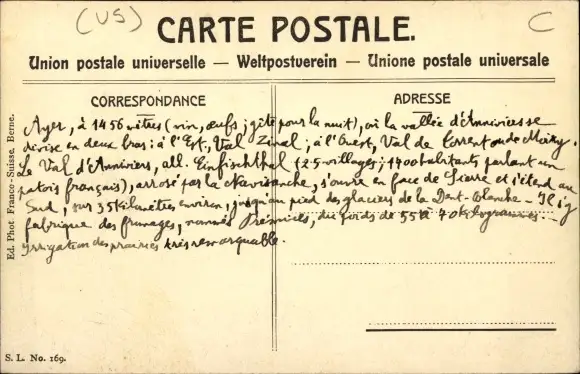 (VS)
C
CARTE POSTALE.
Union postale universelle — Weltpostverein — Unione postale universale
CORRESPONDANCE
ADRESSE
Ayer, à 1456 mètres (vin, œufs; gîte pour la nuit), où la vallée d'Anniviers se
divise en deux bras: à l'Est, Val Zinal; à l'Ouest, Val de Torrent ou de Moiry.
Le Val d'Anniviers, all. Einfischthal (25 villages; 1400 habitants parlant un
patois français), arrosé par la Navisanche, s'ouvre en face de Sierre et s'étend au
Sud, sur 35 kilomètres environ, jusqu'au pied des glaciers de la Dent-Blanche – Il y
fabrique des fromages, nommés du poids de 55 à 70 kilogrammes –
Irrigation des prairies très remarquable.
Ed. Phot Franco-Suisse, Berne.
S. L. No. 169.